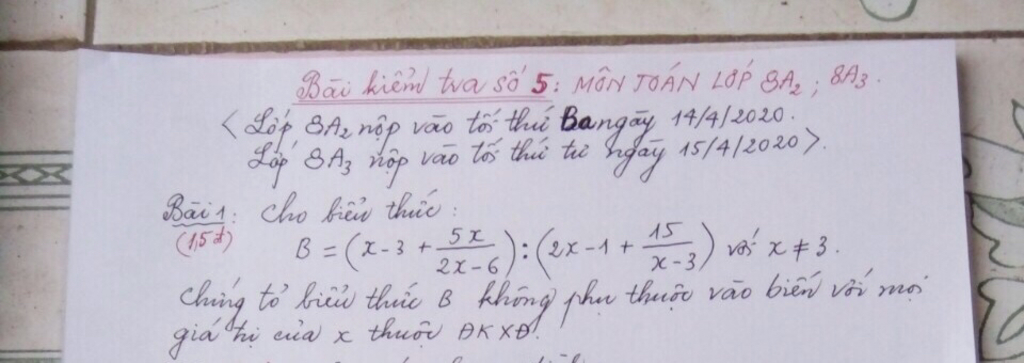 Bài kiểm tra số 5: MÔN TOÁN LỚP 8A2; 8A3.
< Lớp 8A2 nộp vào tối thứ Ba ngày 14/4/2020.
Lớp 8A3 nộp vào tối thứ tư ngày 15/4/2020>.
Bài 1: Cho biểu thức:
(1,5đ)
B = (x-3 + 5x/(2x-6)) : (2x-1 + 15/(x-3)) với x ≠ 3.
Chứng tỏ biểu thức B không phụ thuộc vào biến với mọi
giá trị của x thuộc ĐKXĐ!